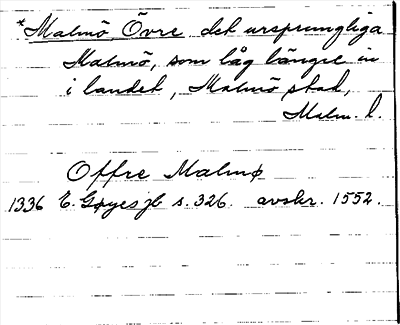 *Malmö, Övre det ursprungliga
Malmö, som låg längre in
i landet, Malmö stad,
Malm. l.
Offre Malmø
1336 E. Gøyes jb s. 326. avskr. 1552.